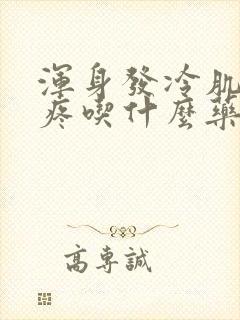 渾身發冷肌
疼喫什麼藥
高專誠